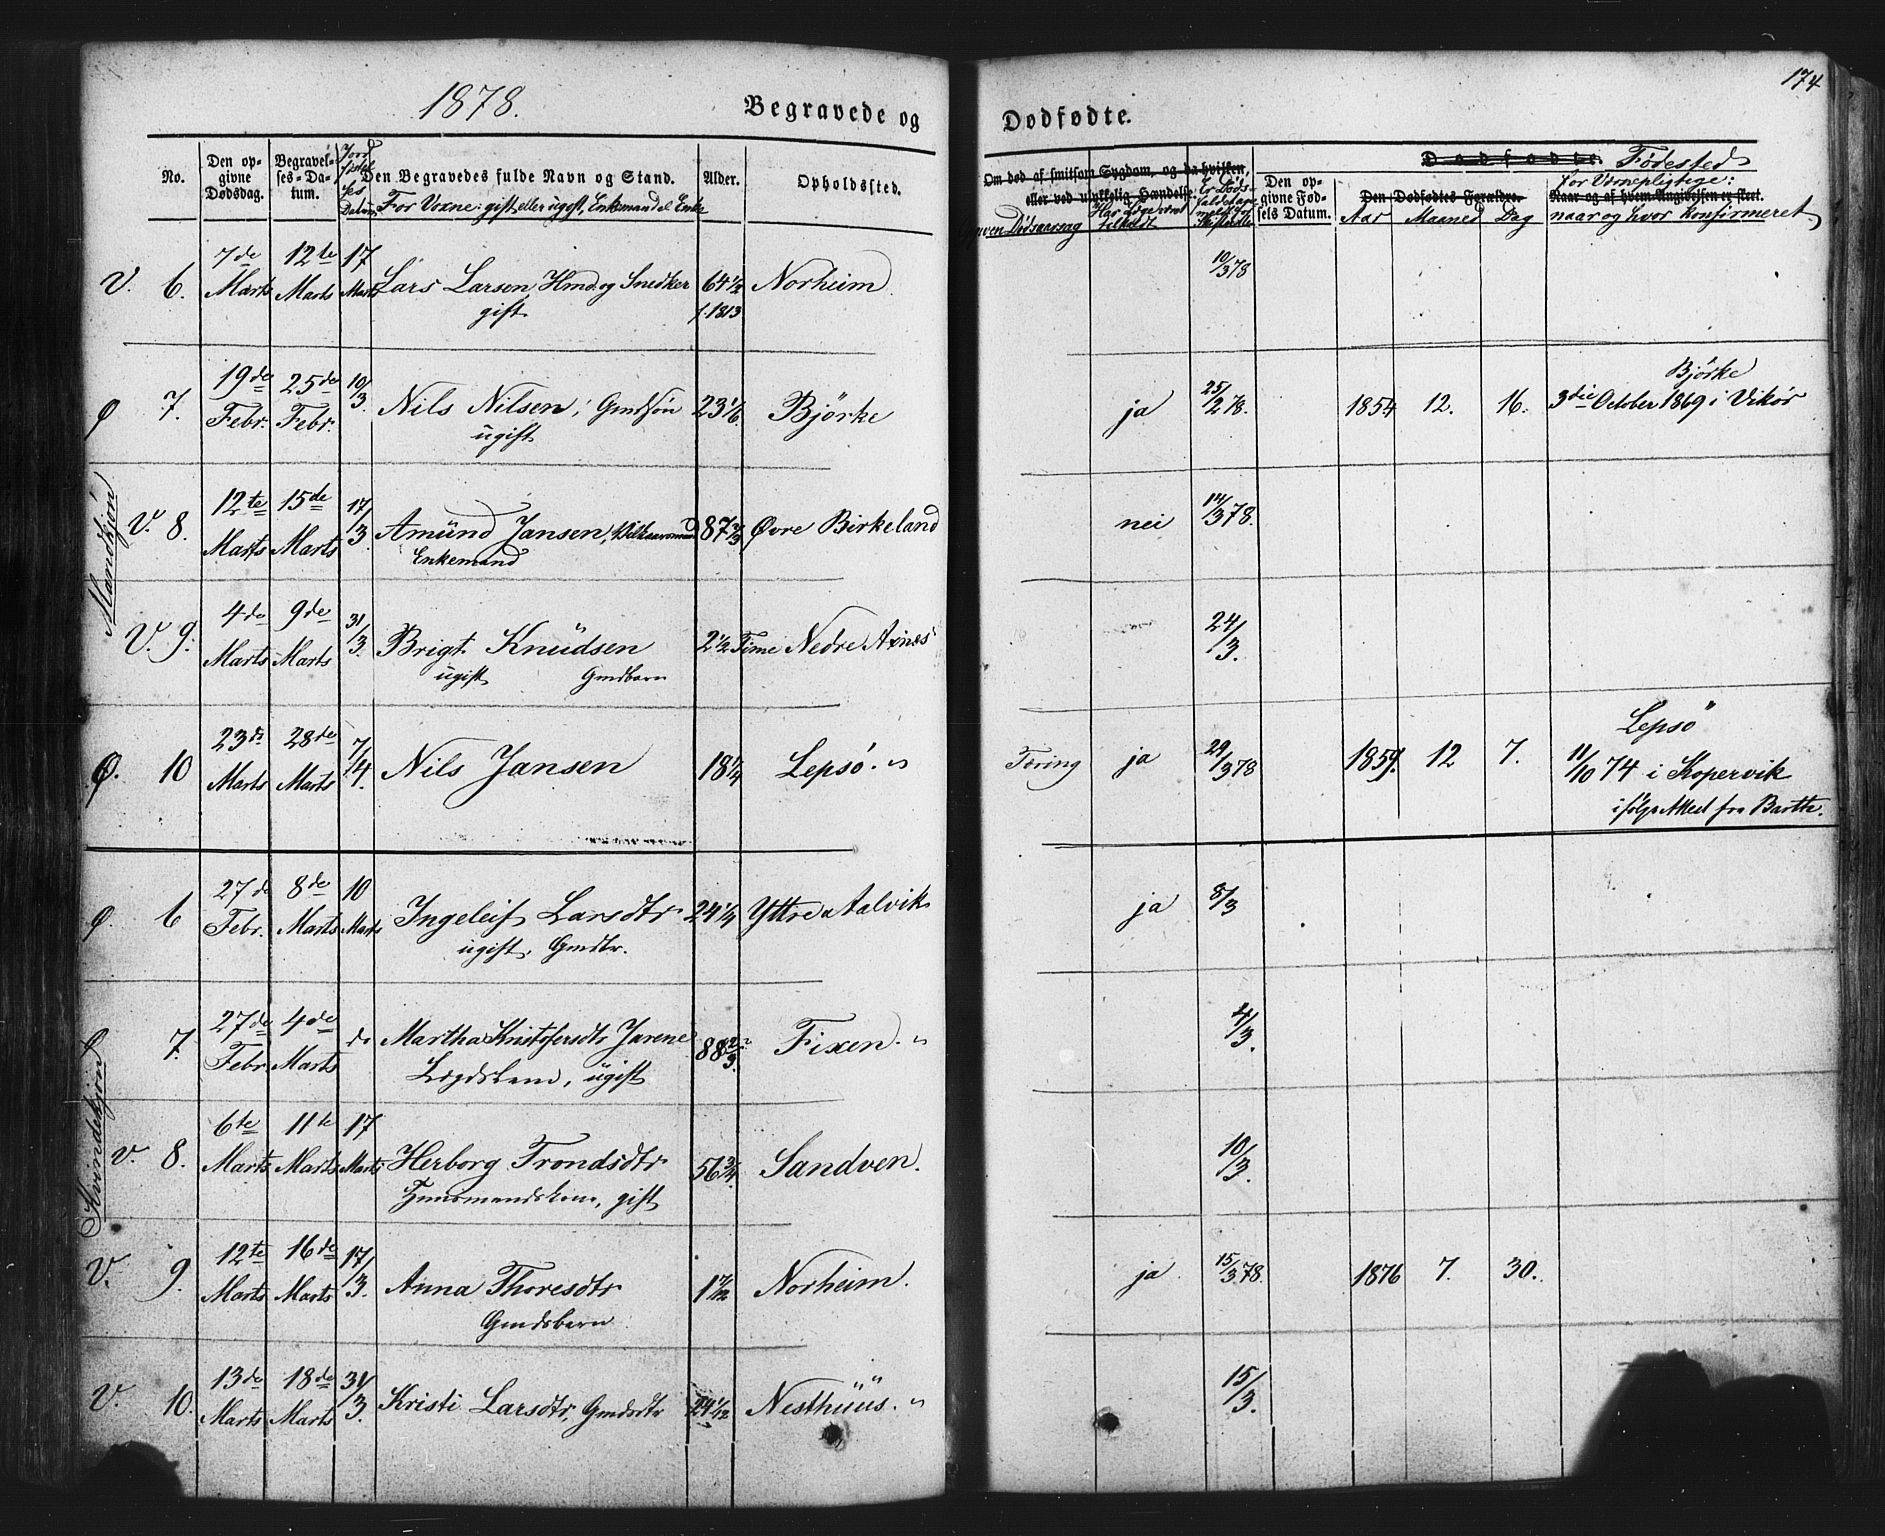 1878.
Begravede og
Dødfødte.
174
No.
Den opgivne Dødsdag.
Begravelses-Datum.
Jordfæstelses Datum
Den Begravedes fulde Navn og Stand.
For Voxne: gift eller ugift, Enkemand el. Enke
Alder.
Opholdssted.
Om død af smitsom Sygdom, og da hvilken,
eller ved ulykkelig Hændelse.
Dødsaarsag
Den opgivne Fødsels Datum.
Dødfødte.
Den Dødfødtes Forældre.
Aar Maaned Dag
Fødested
for Værnepligtige:
Naar og af hvem Angivelsen er skeet.
naar og hvor konfirmeret
Mandkjøn
V. 6. 7de Marts 12te Marts 17 Marts Lars Larsen Hmd. og Snedker 64 1/2 Norheim 10/3 78
gift f. 1813
Ø 7. 19de Febr. 25de Febr. 10/3. Nils Nilsen, Gmdsøn 23 1/6. Bjørke ja 25/2 78. 1854 12. 16. Bjørke
ugift 3die October 1869 i Vikør
V. 8. 12te Marts 15de Marts 17/3. Amünd Jansen, 87 2/3 Øvre Birkeland nei 14/3 78.
Enkemand
V. 9. 4de Marts 9de Marts 31/3. Brigt Knüdsen 2 1/2 Time Nedre Axnes 24/3.
ugift Gmdbarn
Ø. 10 23de Marts 28de Marts 7/4. Nils Jansen 18 1/4 Lepsö Tæring ja 29/3 78 1859. 12 7. Lepsö
11/10 74 i Kopervik
ifølge fra
Kvindekjøn
Ø. 6 27de Febr. 8de Marts 10 Marts Ingeleif Larsdtr 24 1/4 Yttre Aalvik ja 8/3
ugift, Gmdtr.
7. 27de Febr. 4de Marts do Martha Kristofersdtr 88 2/3. Fixen 4/3.
Lægdslem, ügift
V. 8. 6te Marts 11te Marts 17 Marts Herborg Trondsdtr 56 3/4. Sandven. 10/3.
gift
V. 9. 12te Marts 16de Marts 17/3. Anna Thoresdtr 1 7/12 Norheim. ja. 15/3 78. 1876 7. 30.
Gmdsbarn
V. 10. 13de Marts 18de Marts 31/3. Kristi Larsdtr, Gmdsdtr 24 1/12 Nesthüüs. 15/3.